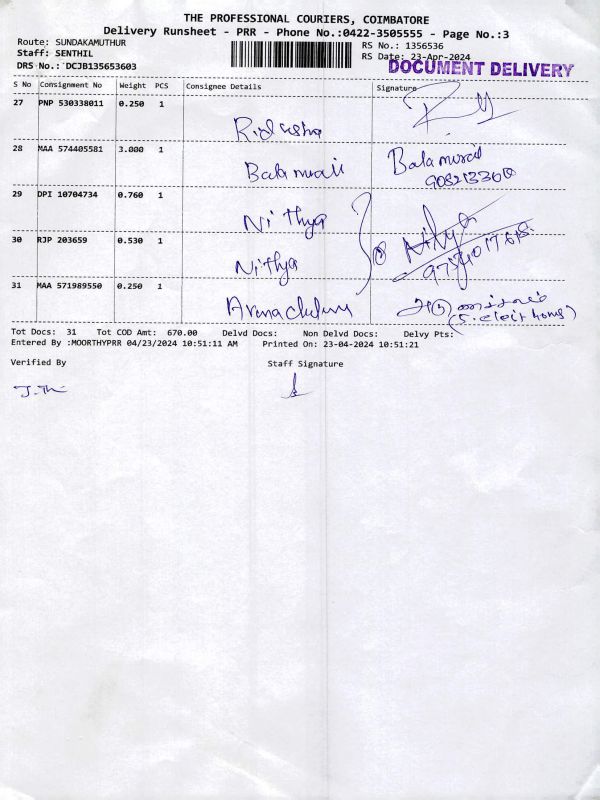 THE PROFESSIONAL COURIERS, COIMBATORE
Delivery Runsheet - PRR - Phone No.:0422-3505555 - Page No.:3
Route: SUNDAKAMUTHUR
RS No.: 1356536
Staff: SENTHIL
RS Date: 23-Apr-2024
DRS No.: DCJB135653603
DOCUMENT DELIVERY
S No Consignment No Weight PCS Consignee Details Signature
27 PNP 530338011 0.250 1
28 MAA 574405581 3.000 1
Balamurali
29 DPI 10704734 0.760 1
Nithya
30 RJP 203659 0.530 1
Nithya
31 MAA 571989550 0.250 1
Tot Docs: 31 Tot COD Amt: 670.00 Delvd Docs: Non Delvd Docs: Delvy Pts:
Entered By :MOORTHYPRR 04/23/2024 10:51:11 AM Printed On: 23-04-2024 10:51:21
Verified By Staff Signature